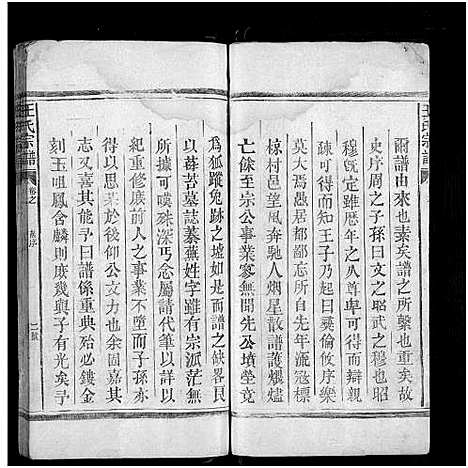 爾譜由來也素矣譜之所繫也重矣故
史序周之子孫曰文之昭武之穆也昭
穆既定雖歷年之悠久可得而辯親
疎可得而知王子乃起曰彝倫攸序樂
莫大焉愚居都鄙示所自先年流寇標
掠村邑望風奔馳人烟星散譜爐燼
亡餘至宗公事業寥無聞先公墳塋竟
爲狐蹤兔跡之墟如是而譜之缺畧艮
以蓦苔墓誌蓁蕪姓字雖有宗派茫無
所據可嘆殊深丐念屬請代筆以詳以
紀重修庶前人之事業不墮而子孫亦
得以思羙於後仰公文力而固嘉其
志又喜其能予曰譜係重典殆必鏤金
刻玉咀鳳含麟則庶幾與子有光矣予
王氏宗譜
卷之